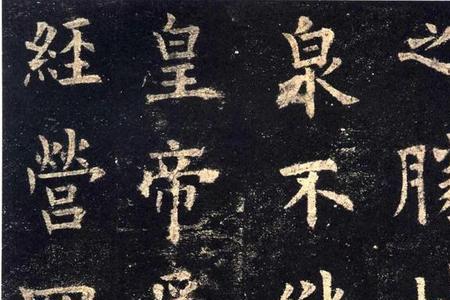 之勝
泉不
皇帝
經營